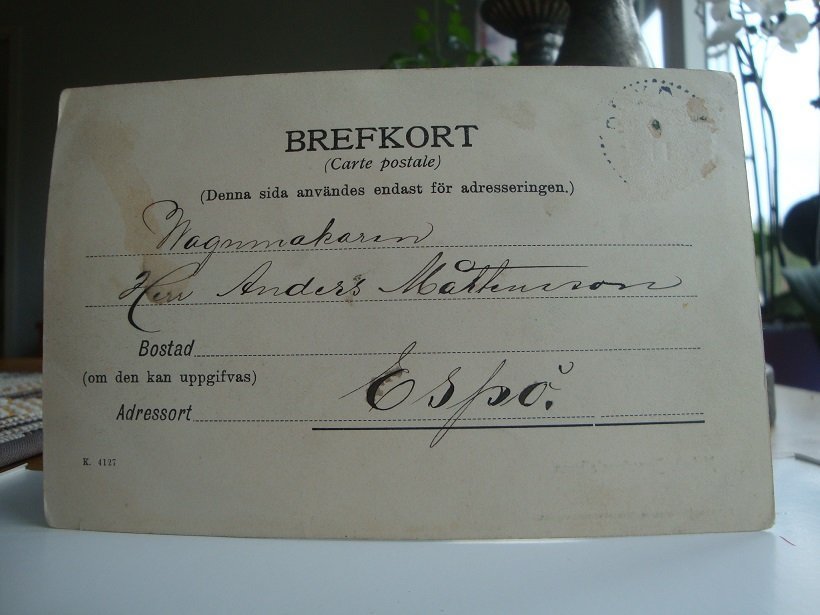 BREFKORT
(Carte postale)
(Denna sida användes endast för adresseringen.)
Wagnmakaren
Herr Anders Mårtensson
Bostad
(om den kan uppgifvas)
Espö.
Adressort
K. 4127